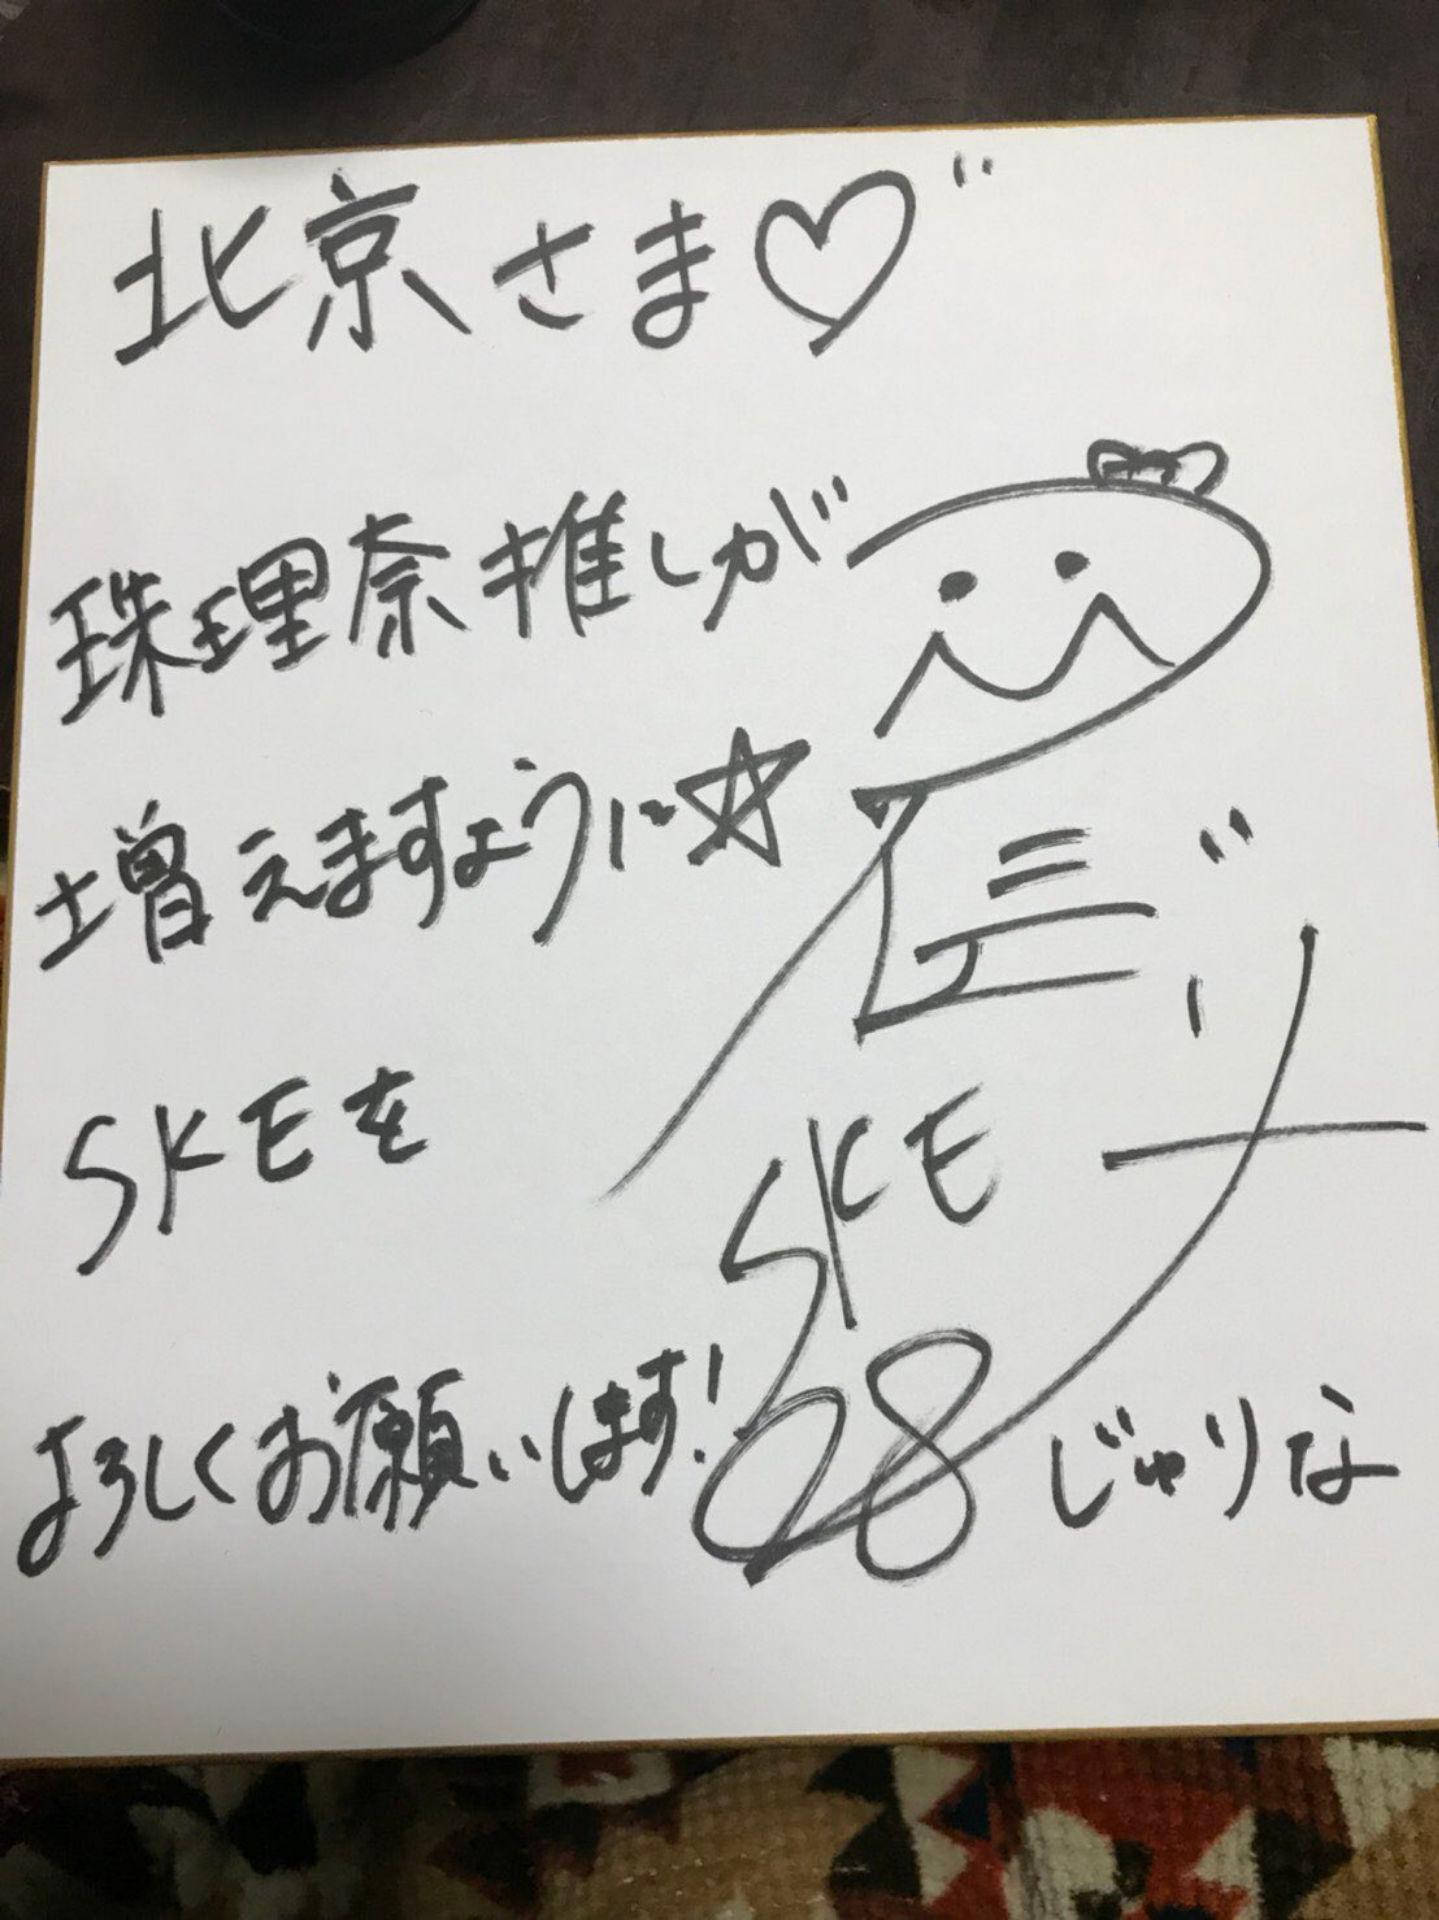 北京さま♡
珠理奈推しが
増えますように☆
SKEを
よろしくお願いします!
SKE
じゅりな